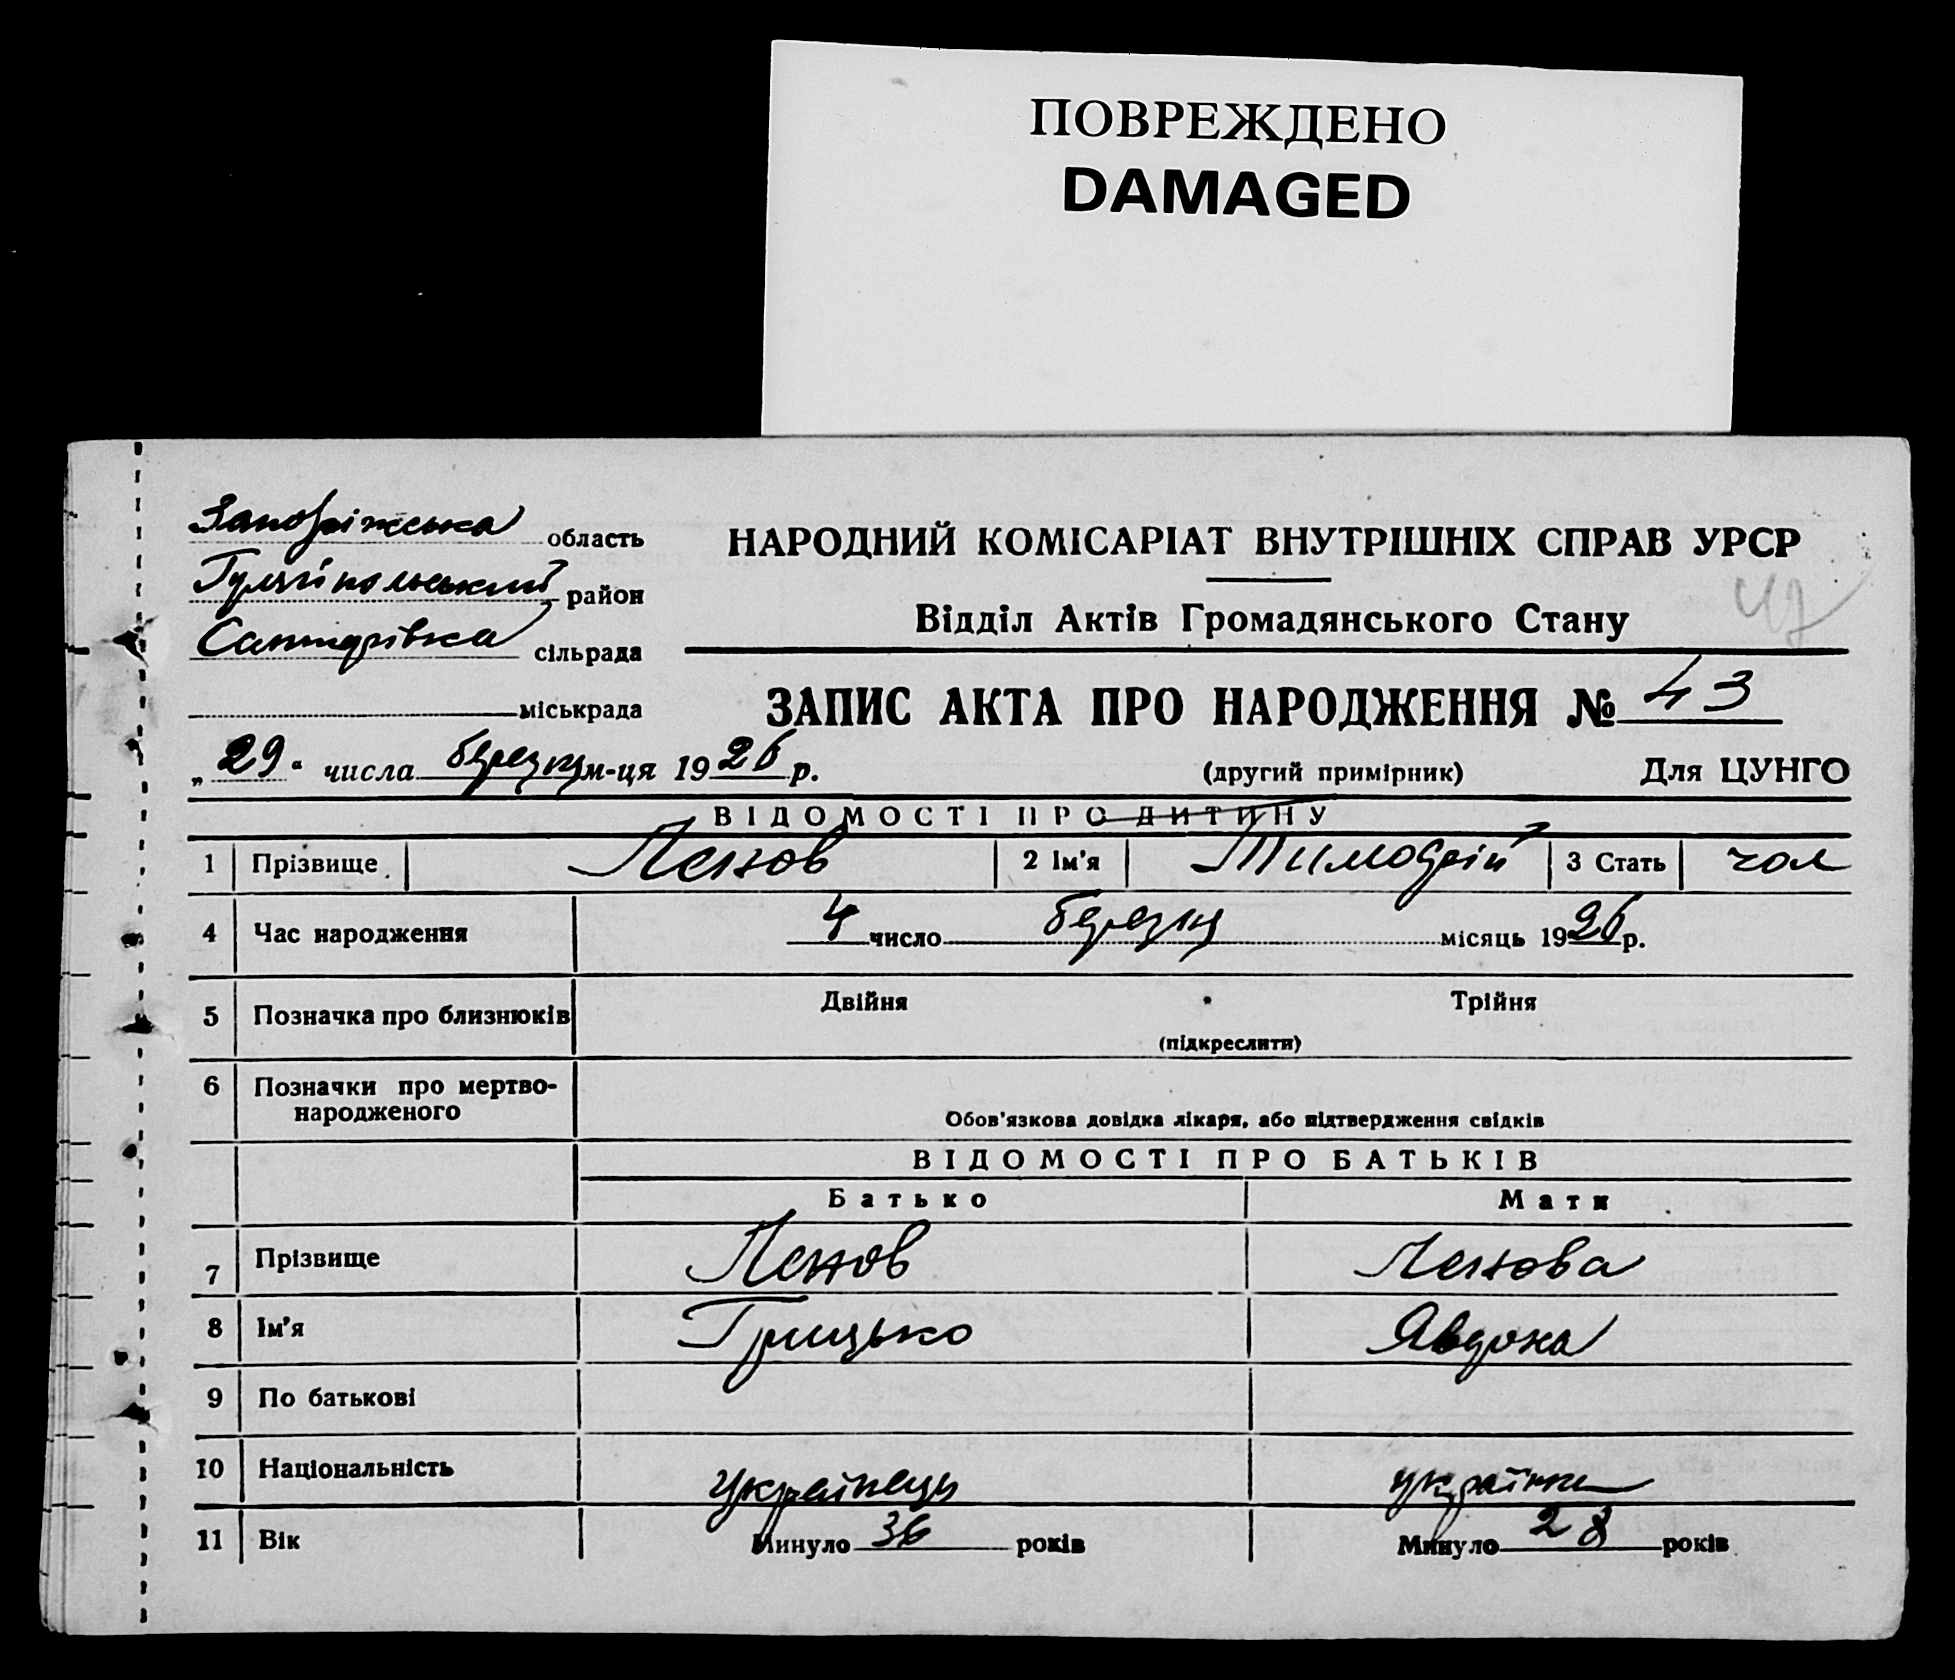 ПОВРЕЖДЕНО
DAMAGED
Запоріжська область
Гуляйпольський район
сільрада
міськрада
НАРОДНИЙ КОМІСАРІАТ ВНУТРІШНІХ СПРАВ УРСР
Відділ Актів Громадянського Стану
47
ЗАПИС АКТА ПРО НАРОДЖЕННЯ № 43
„29“ числа березня м-ця 1926 р.
(другий примірник) Для ЦУНГО
ВІДОМОСТІ ПРО ДИТИНУ
1 Прізвище Пенов 2 Ім'я Тимофій 3 Стать чол
4 Час народження 4 число березня місяць 1926 р.
5 Позначка про близнюків Двійня Трійня
(підкреслити)
6 Позначки про мертво-
народженого
Обов'язкова довідка лікаря, або підтвердження свідків
ВІДОМОСТІ ПРО БАТЬКІВ
Батько Мати
7 Прізвище Пенов Пенова
8 Ім'я Грицько Явдоха
9 По батькові
10 Національність українець українка
11 Вік Минуло 36 років Минуло 28 років